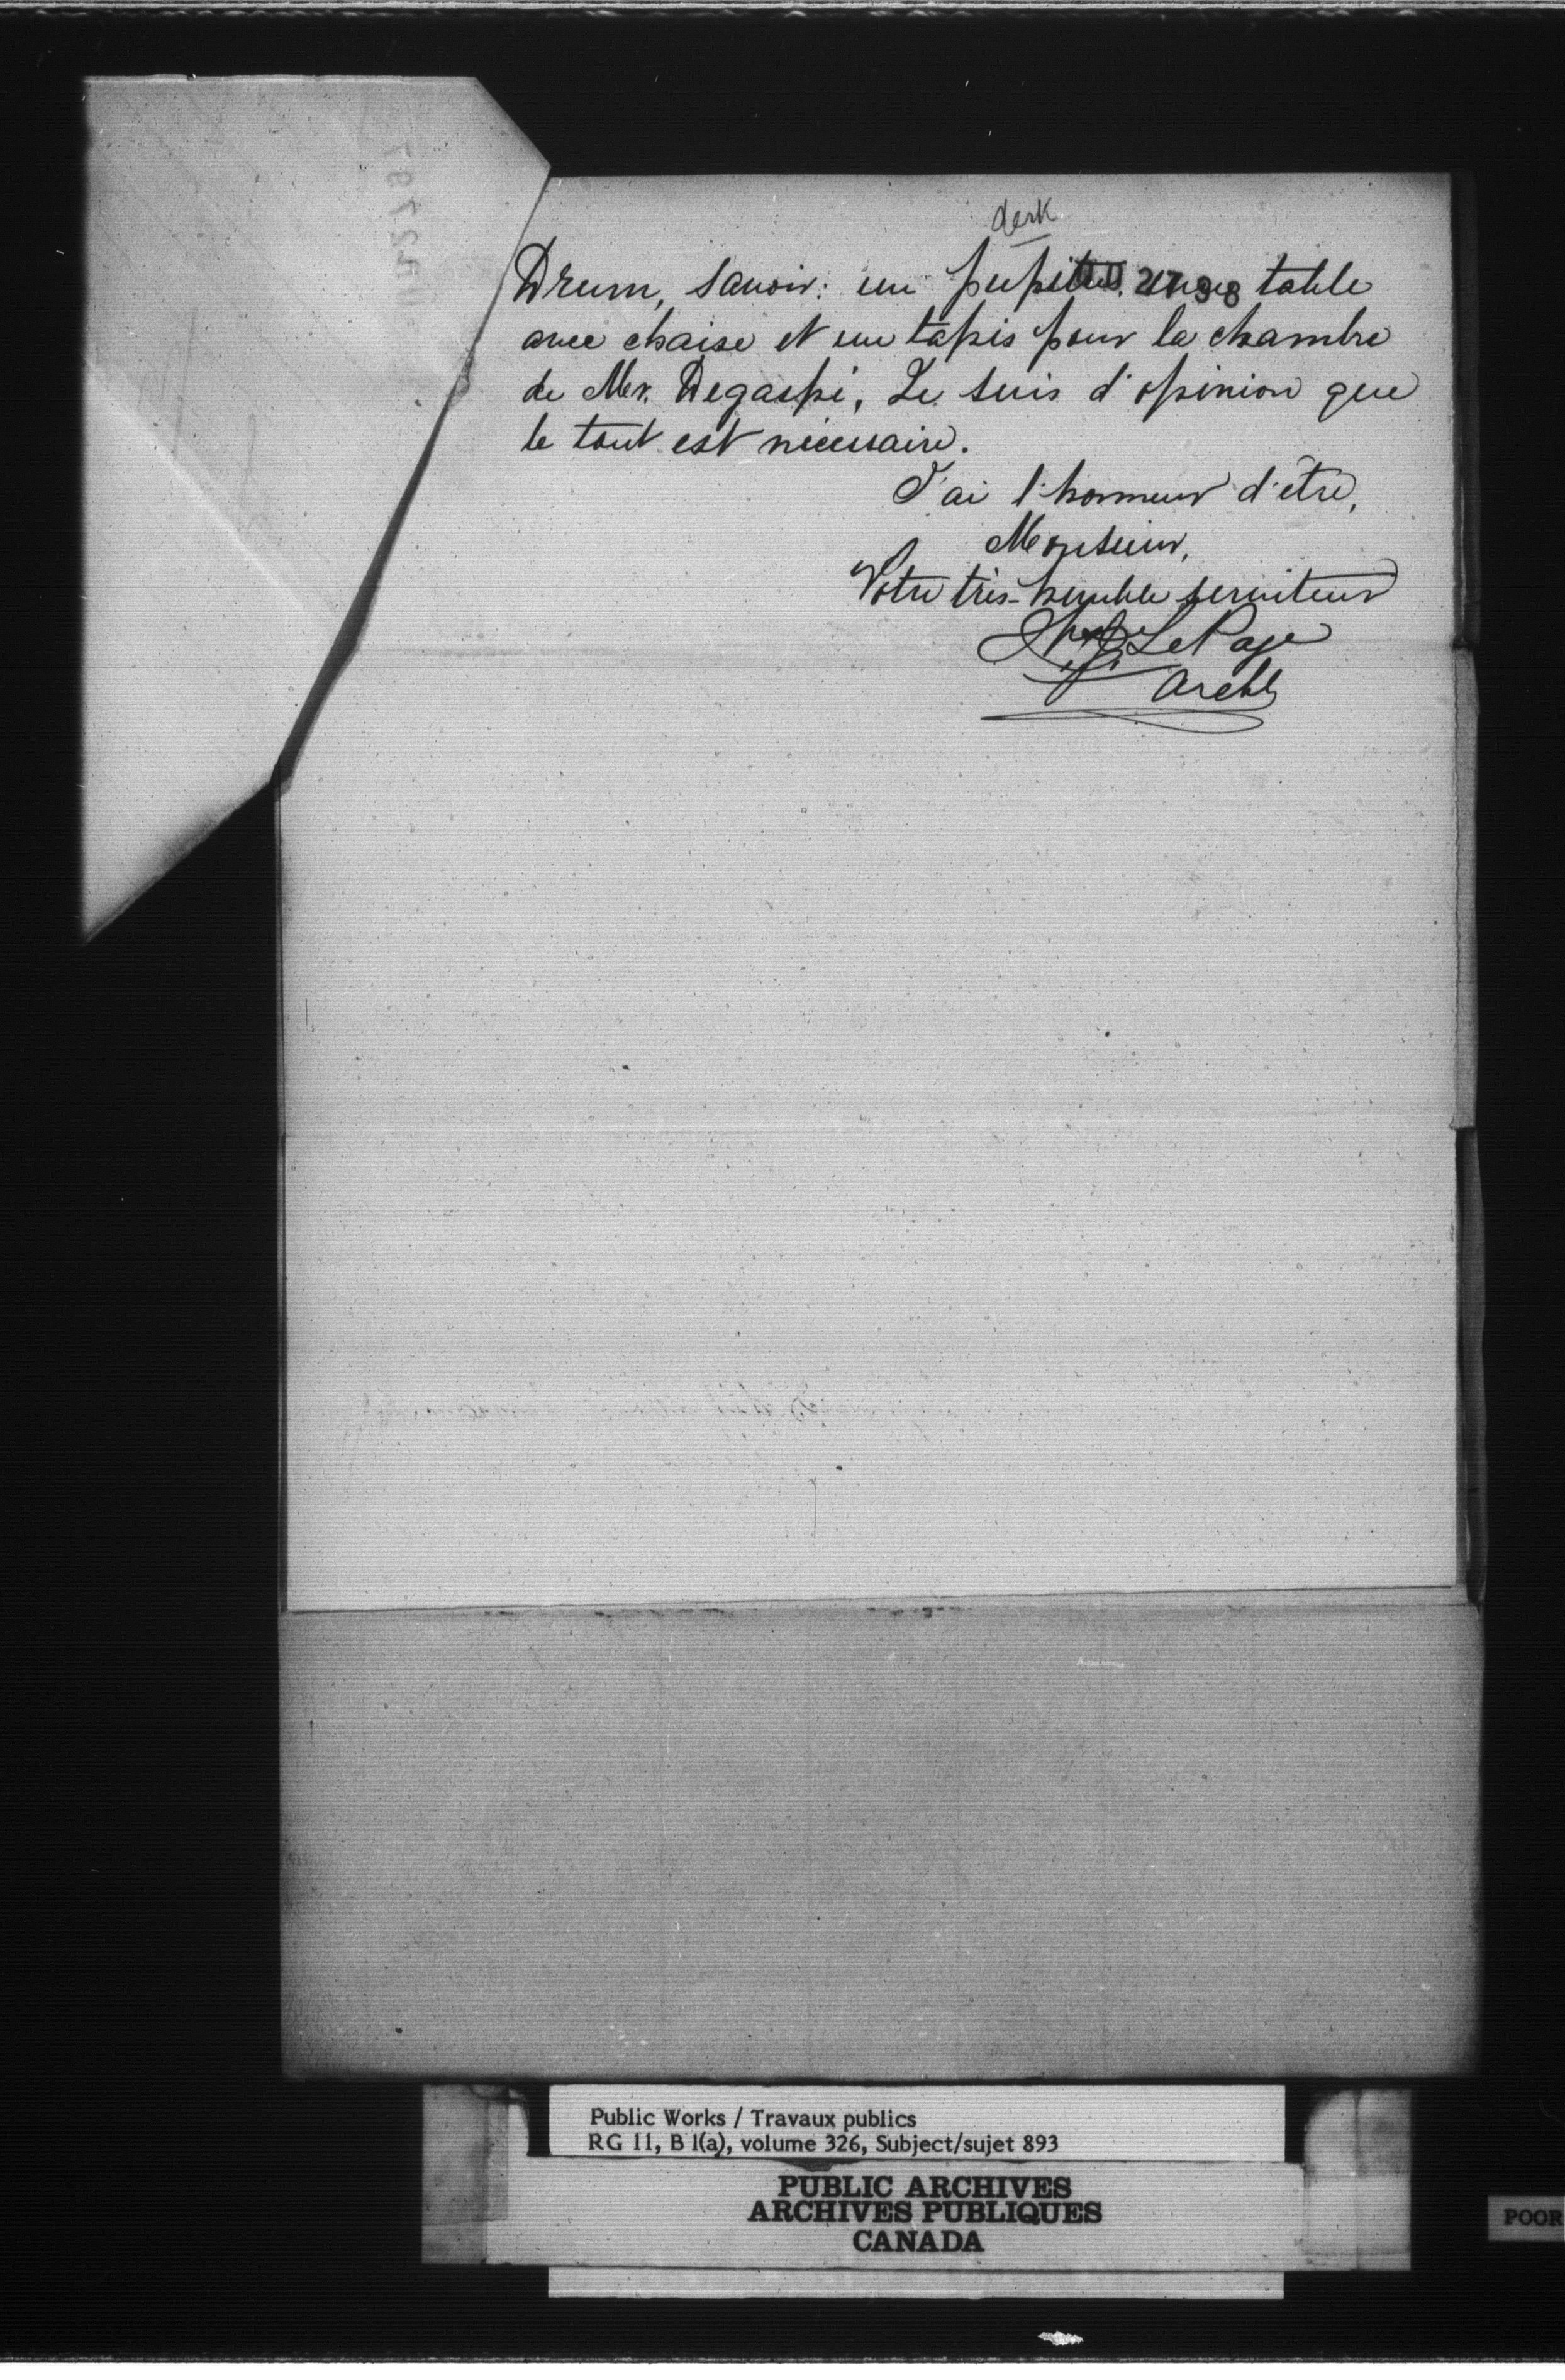 desk
Drum, savoir: un pupitre, une table
avec chaise et un tapis pour la chambre
de Mr. Degaspé, Je suis d'opinion que
le tout est nécessaire.
J'ai l'honneur d'être,
Monsieur,
Votre très-humble serviteur
LePage
Archt
Public Works / Travaux publics
RG 11, B 1(a), volume 326, Subject/sujet 893
PUBLIC ARCHIVES
ARCHIVES PUBLIQUES
CANADA
POOR